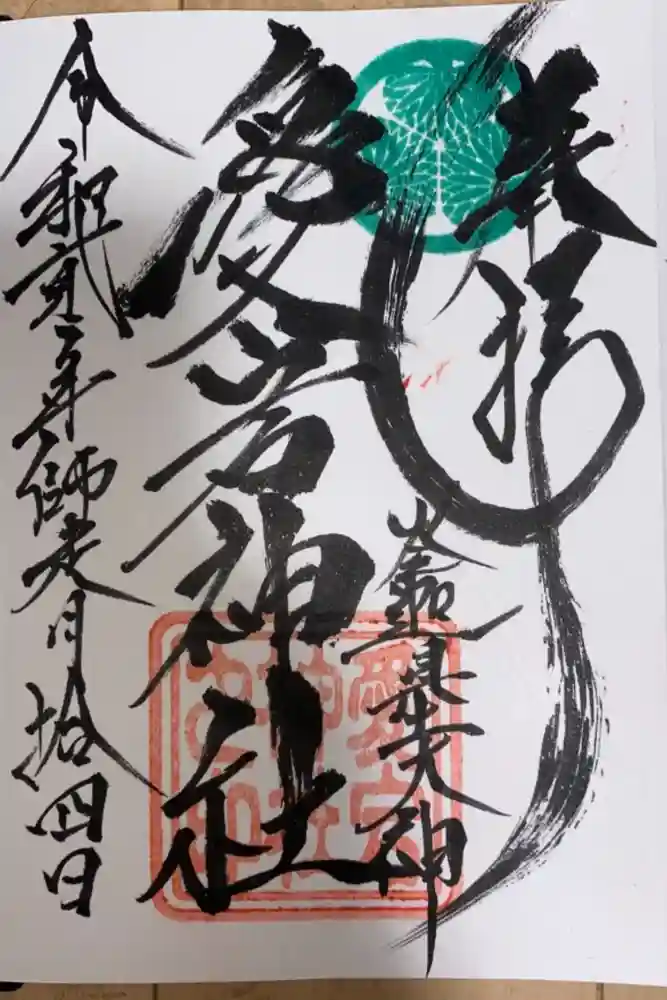 奉拝
大神
愛宕神社
令和弐年師走月拾四日
愛宕
神社
之印